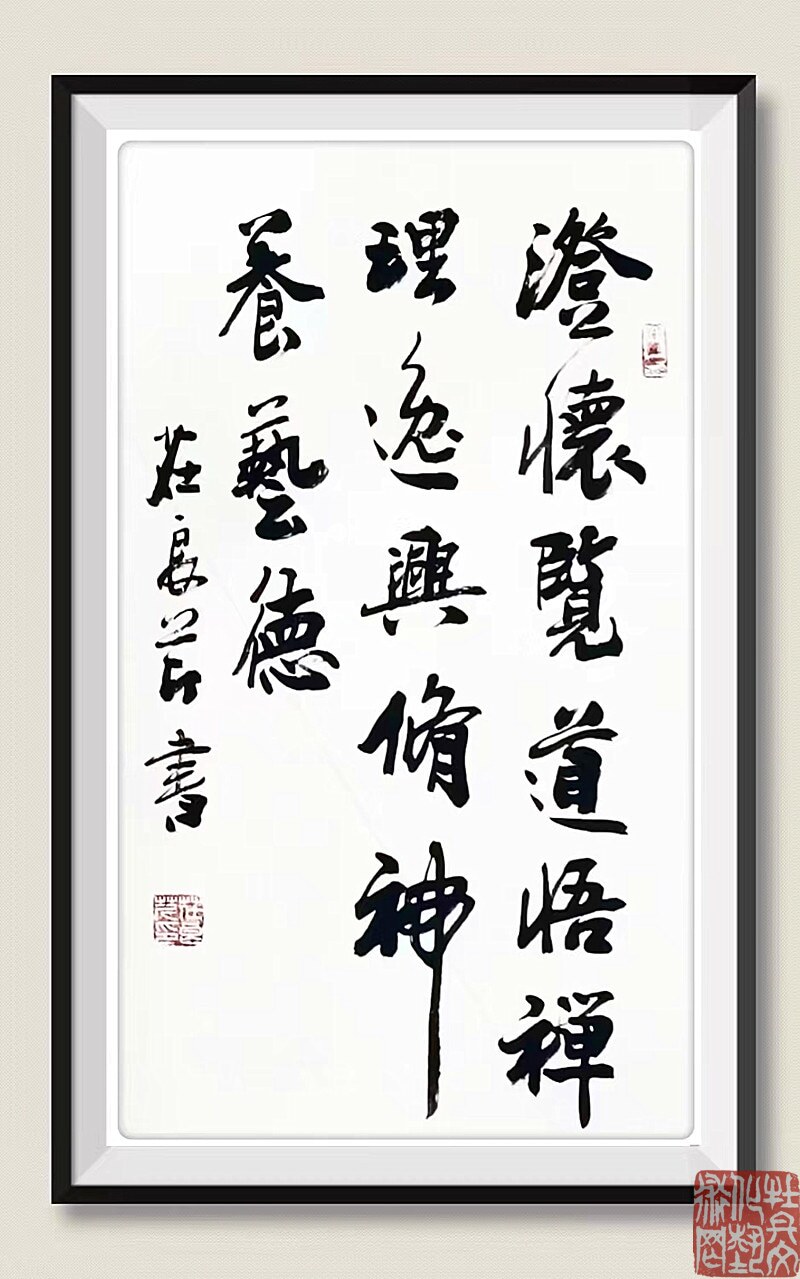 澄懷覽道悟禅
理逸興脩神
養藝德
莊良芹書